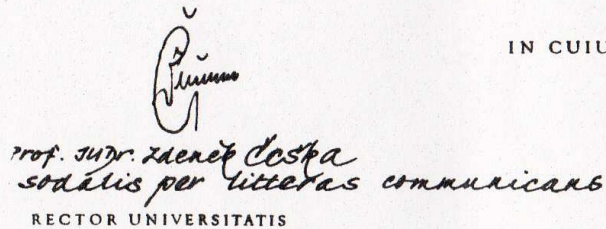 IN CUIU
Prof. JUDr. Zdeněk Češka
sodalis per litteras communicans
RECTOR UNIVERSITATIS